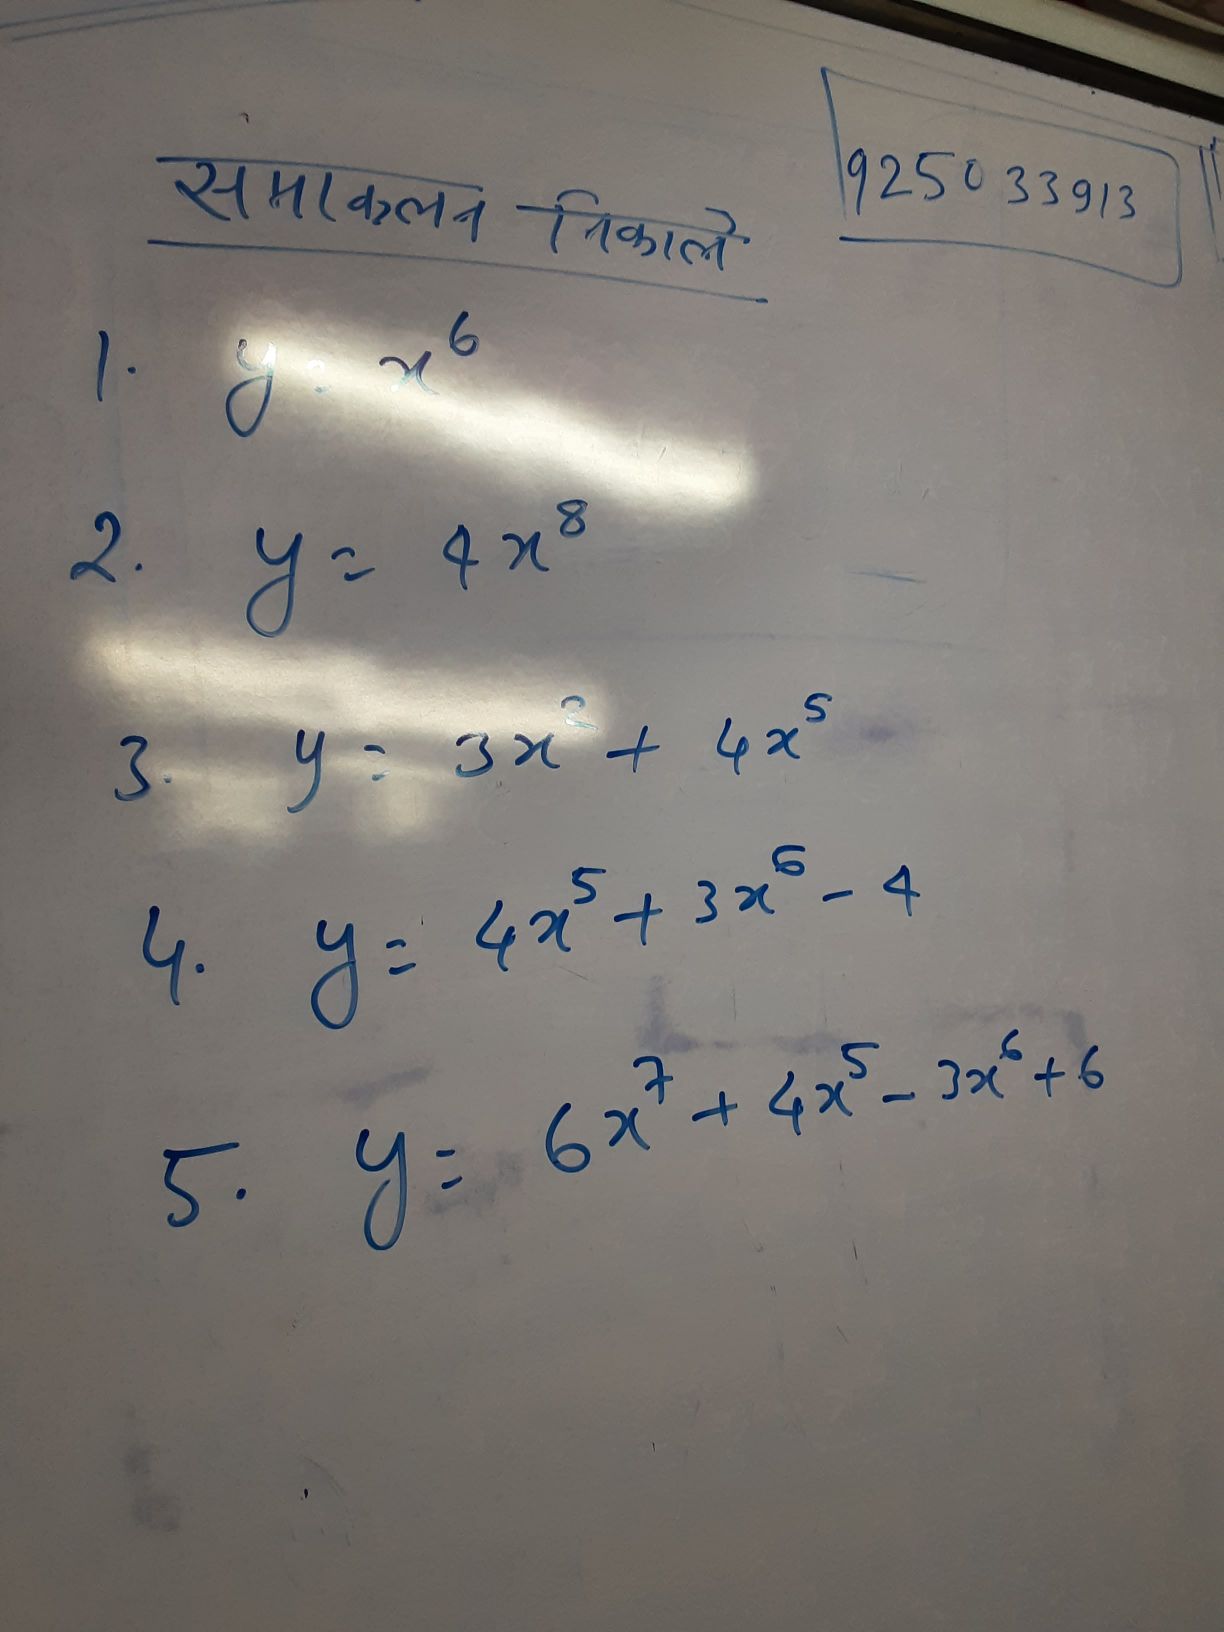 समाकलन निकाले
9250 33913
1. y = x⁶
2. y = 4x⁸
3. y = 3x² + 4x⁵
4. y = 4x⁵ + 3x⁶ - 4
5. y = 6x⁷ + 4x⁵ - 3x⁶ + 6